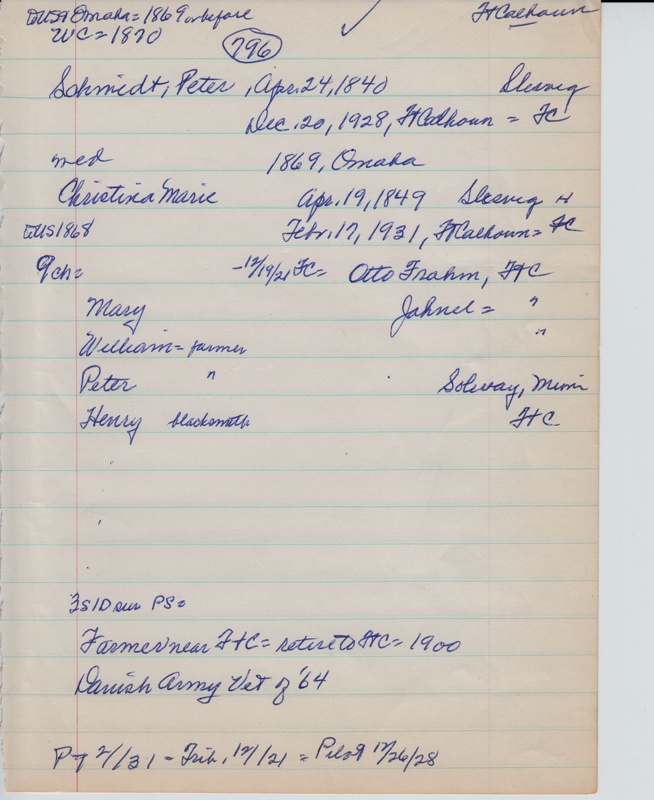 EUSA Omaha = 1869 or before Ft Calhoun
WC = 1870
796
Schmidt, Peter , Apr. 24, 1840 Slesvig
Dec. 20, 1928, Ft Calhoun = FC
med 1869, Omaha
Christina Marie Apr. 19, 1849 Slesvig
EUS 1868 Febr. 17, 1931, Ft Calhoun = FC
9 ch = - 12/19/21 FC = Otto Frahm, Ft C
Mary Jahnel = "
William = farmer "
Peter " Solway, Minn
Henry blacksmith Ft C
3S 1D sur PS =
Farmer near Ft C = retire to Ft C = 1900
Danish Army Vet of '64
P 7 2/31 - Trib. 12/21 = Pilot 12/26/28